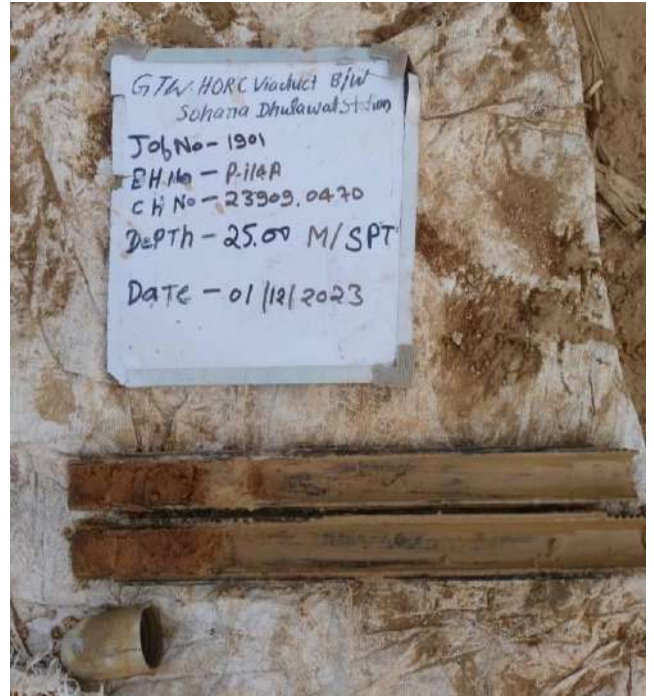 GTW. HORC Viaduct B/W
Sohana Dhulawat Station
Job No - 1901
BH No - P-114A
CH No - 23909.0470
DePTh - 25.00 M/SPT
DaTe - 01/12/2023